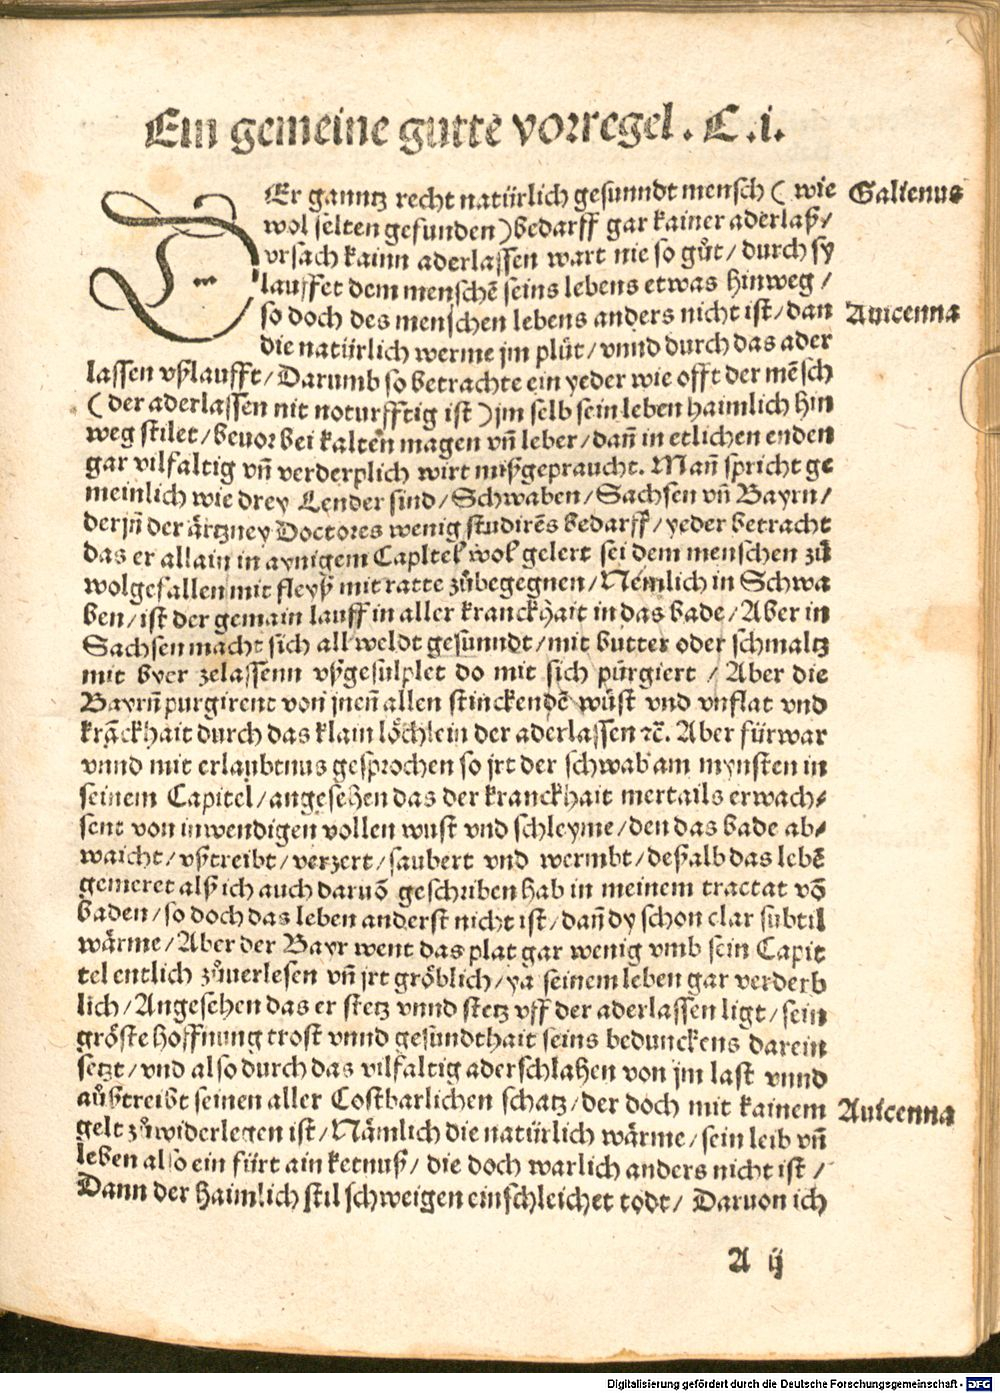 Ein gemeine gutte vorregel. C .i.
DEr ganntz recht natürlich gesunndt mensch ( wie
wol selten gefunden ) bedarff gar kainer aderlaß/
vrsach kainn aderlassen wart nie so gůt/ durch sy
lauffet dem menschē seins lebens etwas hinweg /
so doch des menschen lebens anders nicht ist/ dan
die natürlich werme jm plůt/ vnnd durch das ader
lassen vßlaufft/ Darumb so betrachte ein yeder wie offt der mēsch
( der aderlassen nit noturfftig ist ) jm selb sein leben haimlich hin
weg stilet/ beuor bei kalten magen vñ leber/ dañ in etlichen enden
gar vilfaltig vñ verderplich wirt mißgepraucht. Mañ spricht ge
meinlich wie drey Lender sind/ Schwaben/ Sachsen vñ Bayrn/
derjñ der ärtzney Doctores wenig studirēs bedarff/ yeder betracht
das er allain in aynigem Capltel wol gelert sei dem menschen zů
wolgefallen mit fleyß mit ratte zůbegegnen/ Nemlich in Schwa
ben/ ist der gemain lauff in aller kranckhait in das bade/ Aber in
Sachsen macht sich all weldt gesunndt/ mit butter oder schmaltz
mit byer zelassenn vßgesulplet do mit sich purgiert / Aber die
Bayrñ purgirent von jneñ allen stinckendē wůst vnd vnflat vnd
krāckhait durch das klain löchlein der aderlassen ꝛc̄. Aber fürwar
vnnd mit erlaubtnus gesprochen so jrt der schwab am mynsten in
seinem Capitel/ angesehen das der kranckhait mertails erwach⸗
sent von inwendigen vollen wust vnd schleyme/ den das bade ab⸗
waicht/ vßtreibt/ verzert/ saubert vnd wermbt/ deßalb das lebē
gemeret alß ich auch daruō geschriben hab in meinem tractat vō
baden/ so doch das leben anderst nicht ist/ dañ dy schon clar subtil
wärme/ Aber der Bayr went das plat gar wenig vmb sein Capit
tel entlich zůuerlesen vñ jrt gröblich/ ya seinem leben gar verderb
lich/ Angesehen das er stetz vnnd stetz vff der aderlassen ligt/ sein
gröste hoffnung trost vnnd gesundthait seins bedunckens darein
setzt/ vnd also durch das vilfaltig aderschlahen von jm last vnnd
aůßtreibt seinen aller Costbarlichen schatz/ der doch mit kainem
gelt zůwiderlegen ist/ Nämlich die natürlich wärme/ sein leib vñ
leben also ein fürt ain ketnuß/ die doch warlich anders nicht ist /
Dann der haimlich stil schweigen einschleichet todt/ Daruon ich
A ij
Galienus
Auicenna
Auicenna
Digitalisierung gefördert durch die Deutsche Forschungsgemeinschaft - DFG